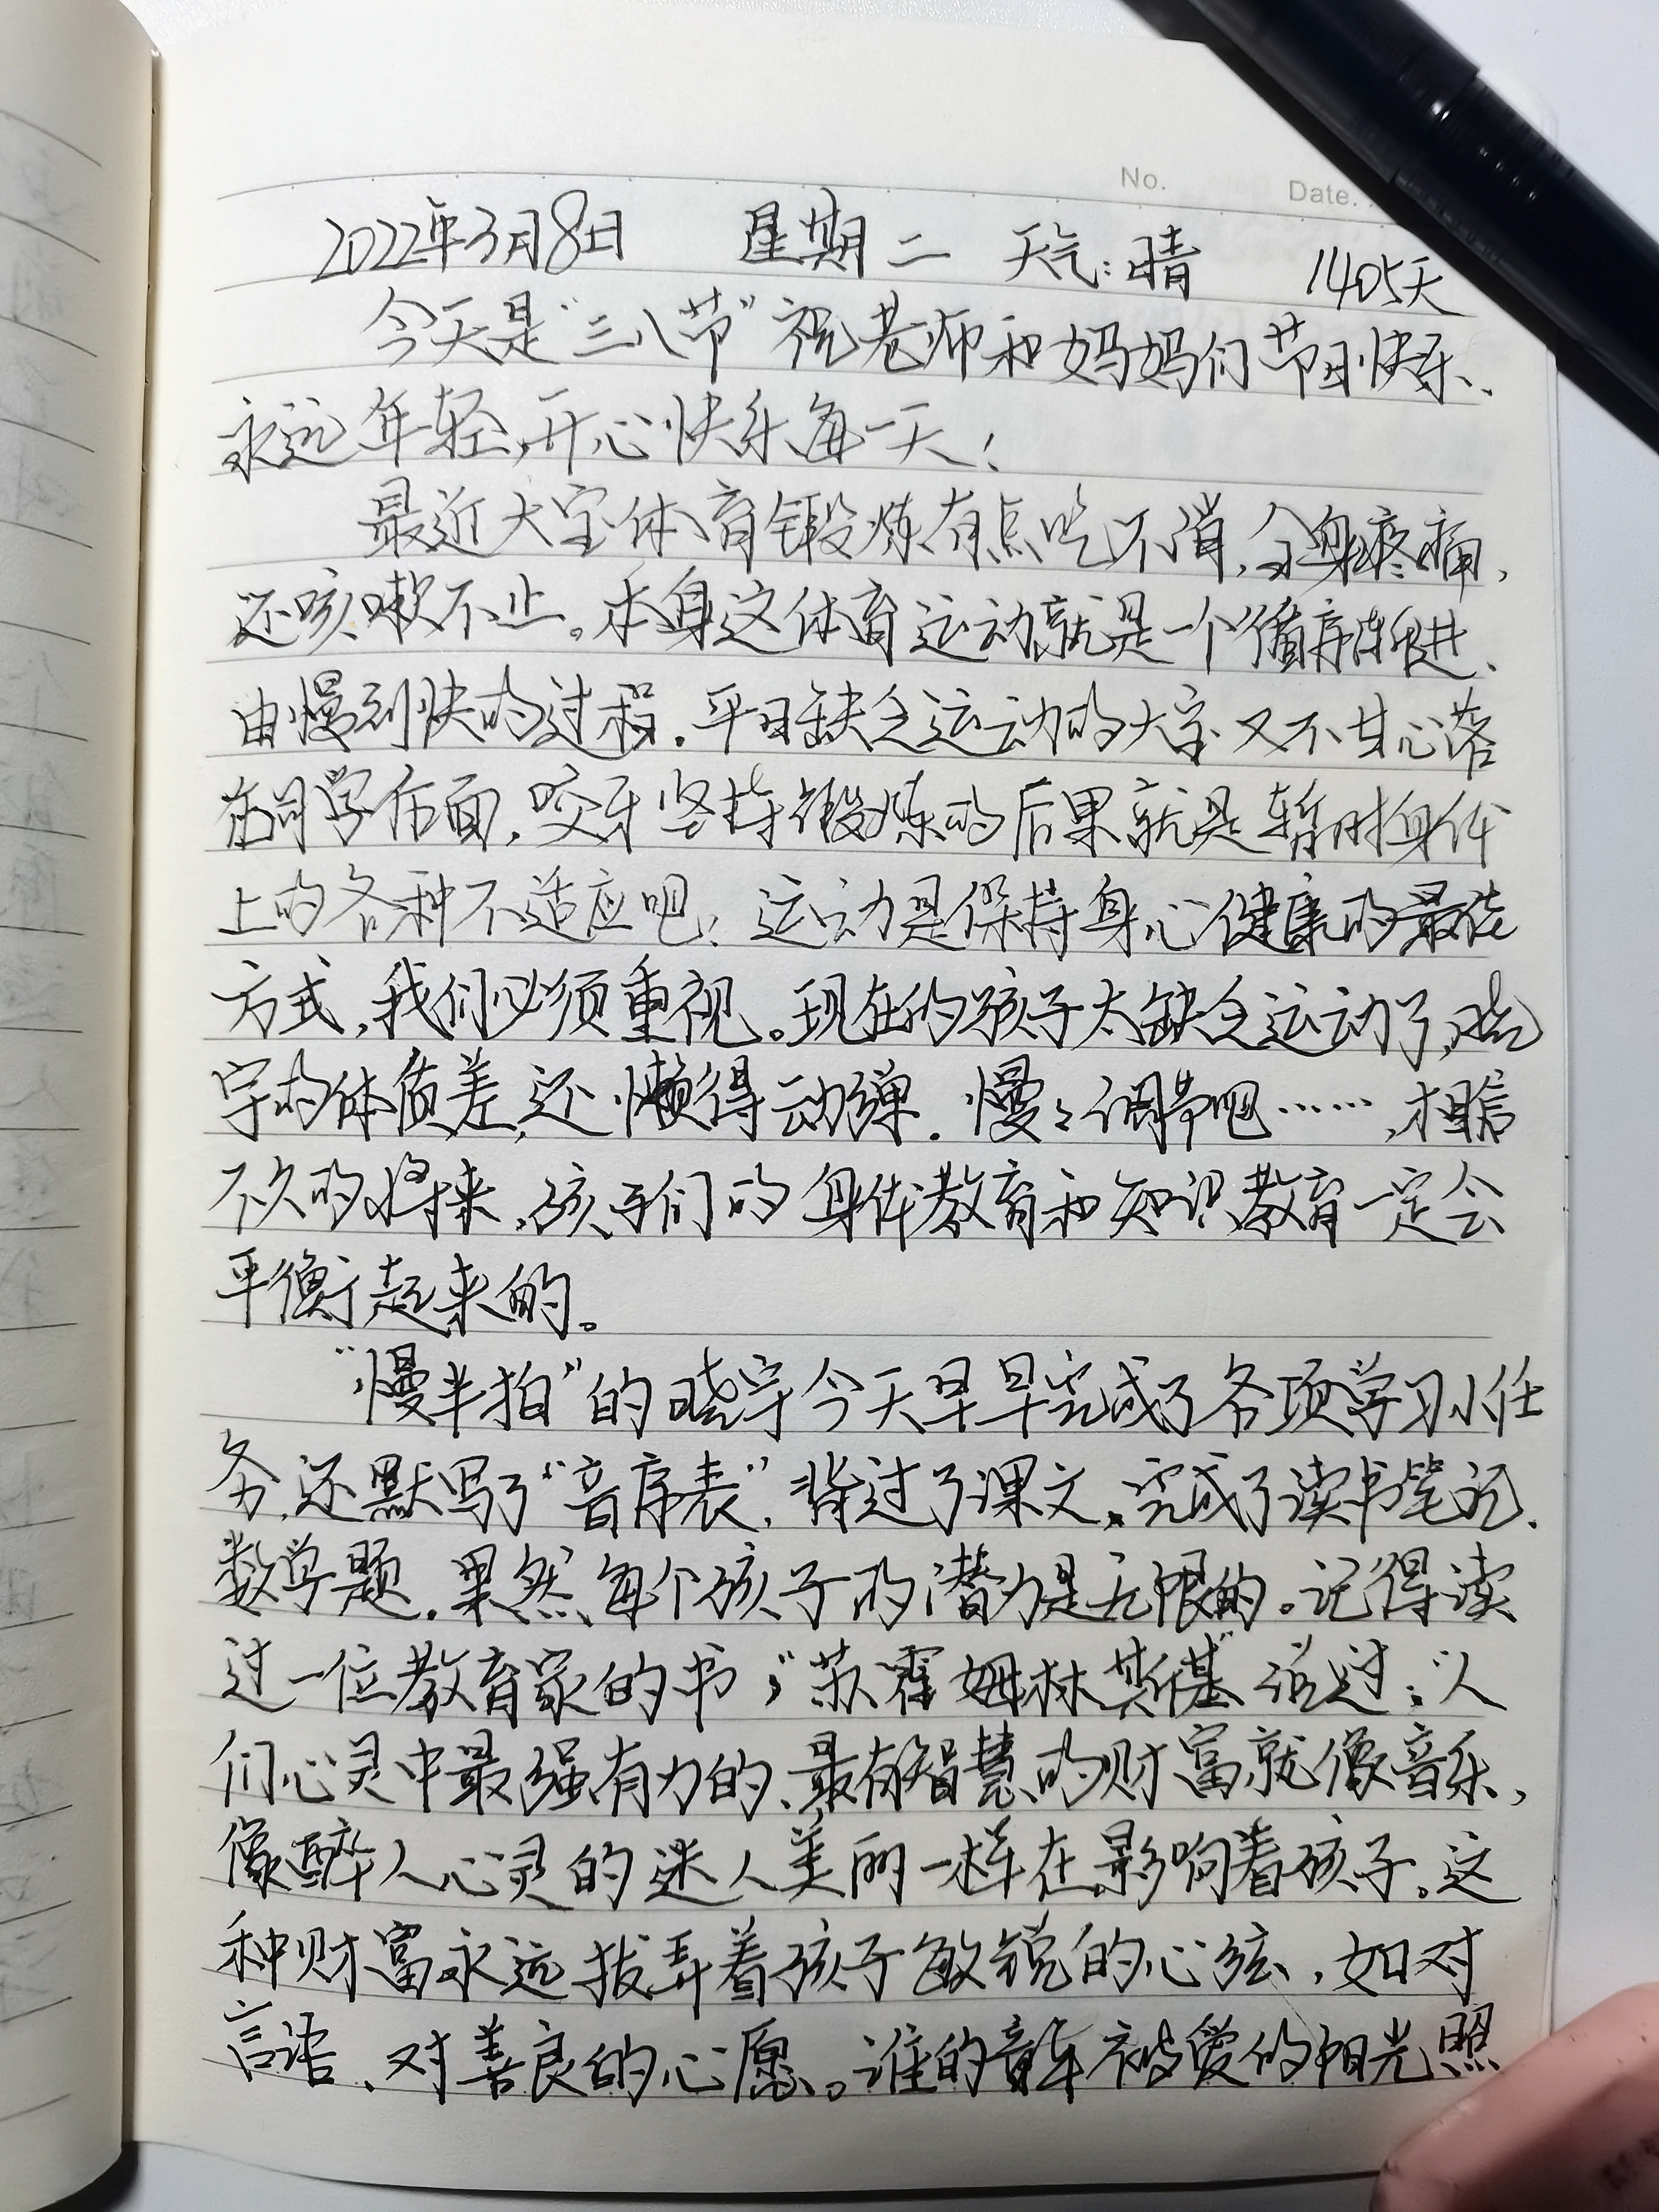 No.
Date.
2022年3月8日 星期二 天气:晴 1405天
今天是“三八节”祝老师和妈妈们节日快乐、
永远年轻,开心快乐每一天!
最近大宝体育锻炼有点吃不消,全身疼痛,
还咳嗽不止。本身这体育运动就是一个循序渐进、
由慢到快的过程.平日缺乏运动的大宝又不甘心落
在同学后面,咬牙坚持锻炼的后果就是暂时身体
上的各种不适应吧!运动是保持身心健康的最佳
方式,我们必须重视。现在的孩子太缺乏运动了,晓
宇的体质差,还懒得动弹.慢々调节吧……,相信
不久的将来,孩子们的身体教育和知识教育一定会
平衡起来的。
“慢半拍”的晓宇今天早早完成了各项学习小任
务,还默写了“音序表”,背过了课文,完成了读书笔记、
数学题.果然,每个孩子的潜力是无限的。记得读
过一位教育家的书,“苏霍姆林斯基”说过:“人
们心灵中最强有力的、最有智慧的财富就像音乐,
像醉人心灵的迷人美丽一样在影响着孩子。这
种财富永远拨弄着孩子敏锐的心弦,如对
言语、对善良的心愿。谁的童年被爱的阳光照